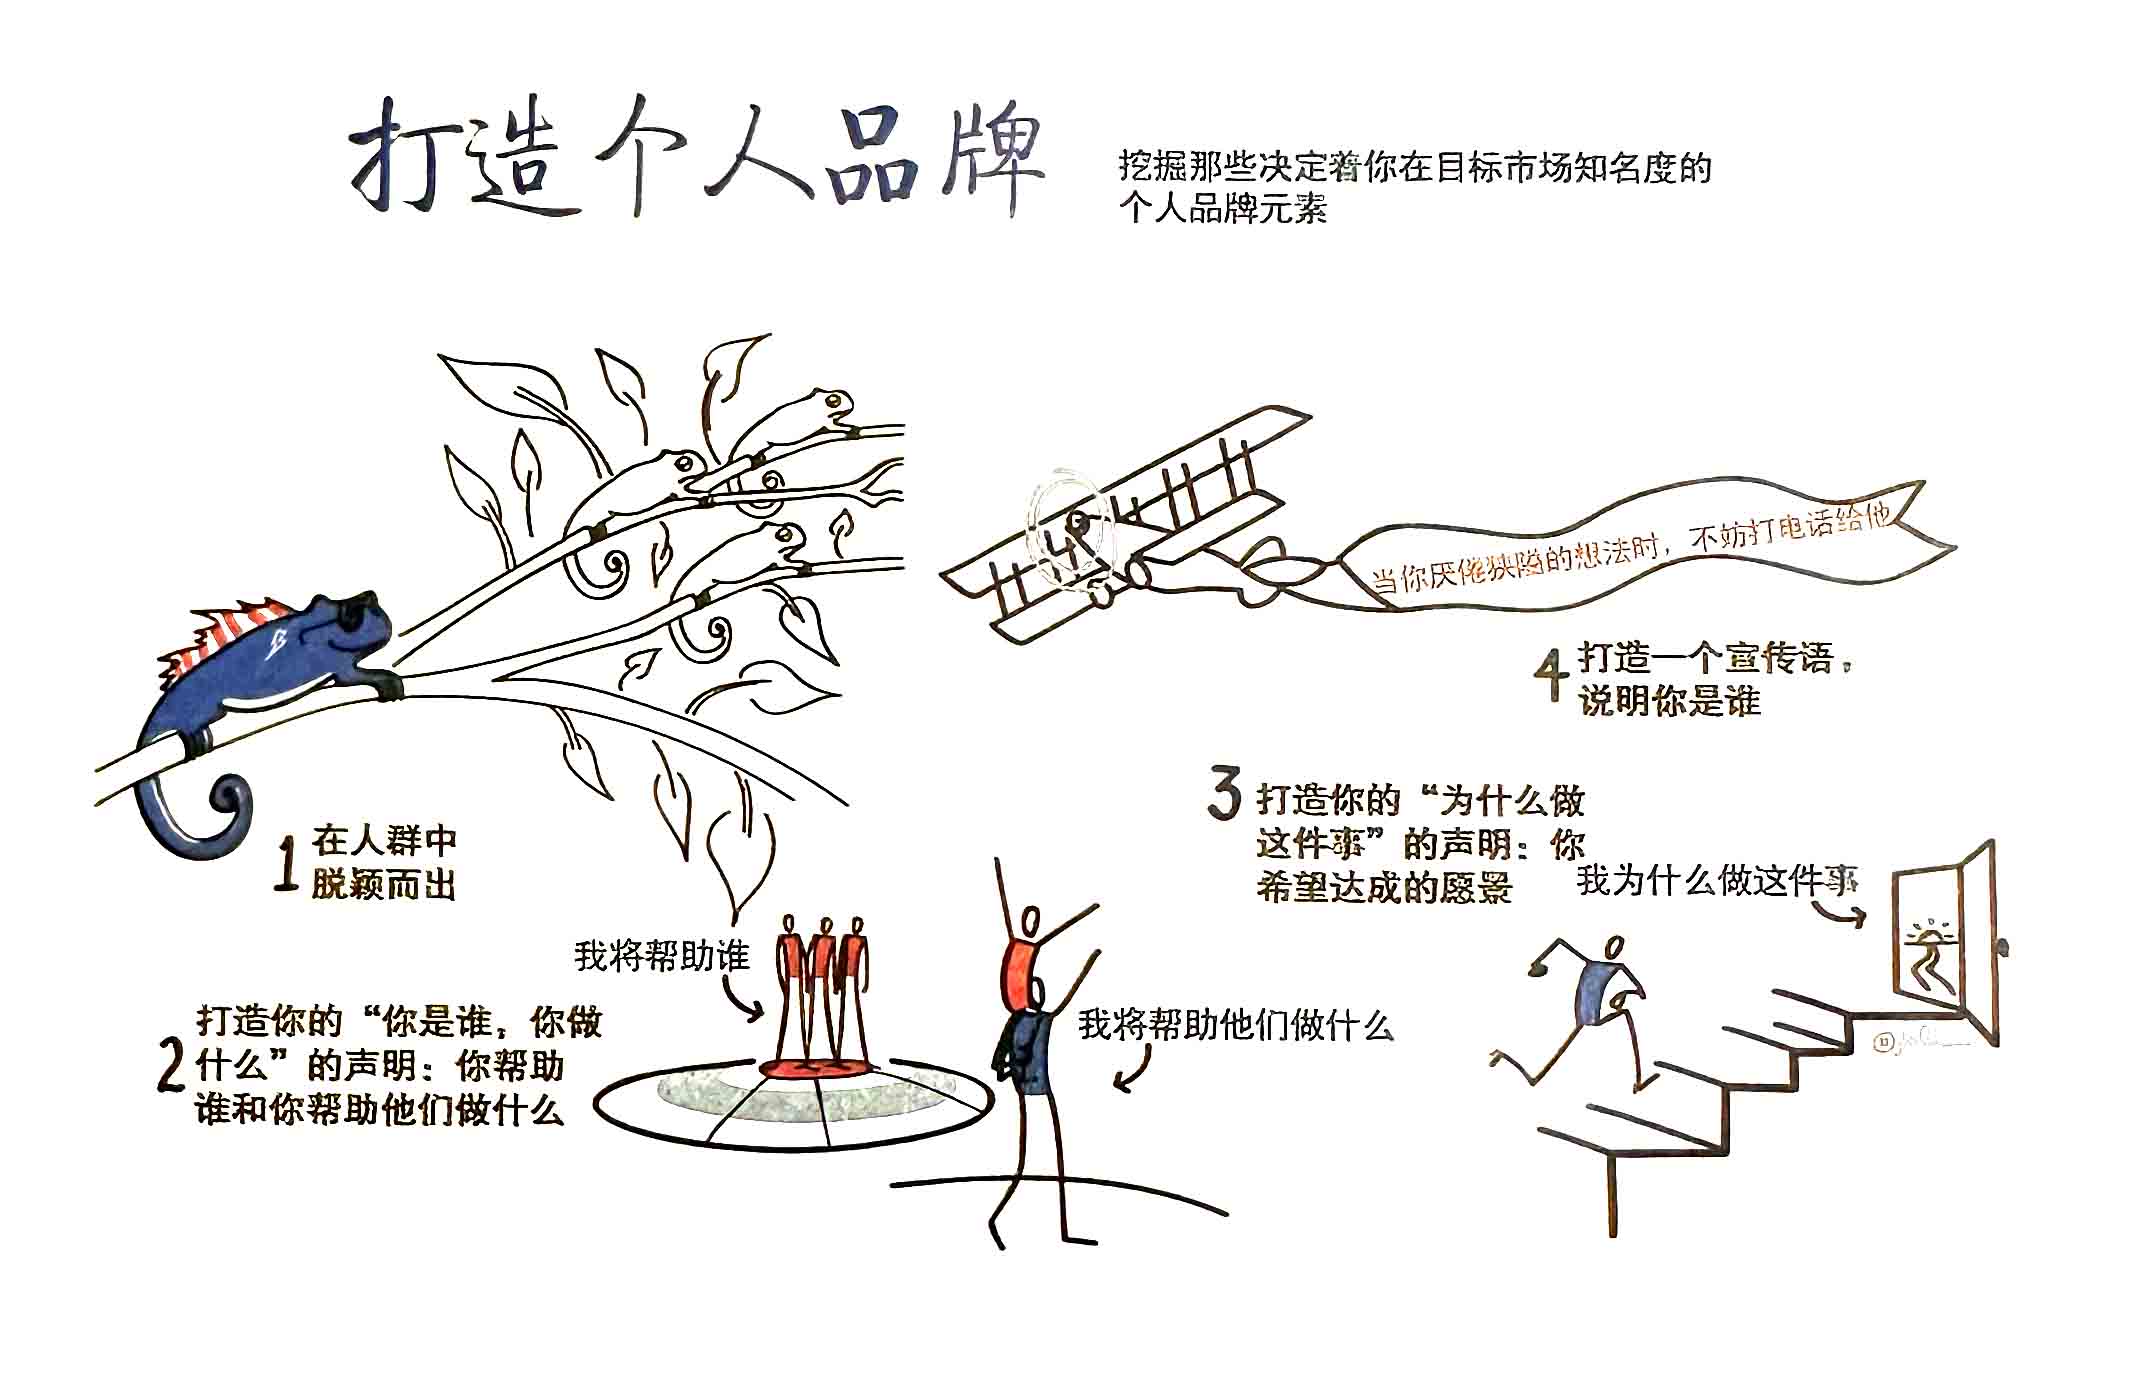 打造个人品牌
挖掘那些决定着你在目标市场知名度的
个人品牌元素
1 在人群中
脱颖而出
我将帮助谁
2 打造你的“你是谁，你做
什么”的声明：你帮助
谁和你帮助他们做什么
我将帮助他们做什么
3 打造你的“为什么做
这件事”的声明：你
希望达成的愿景
我为什么做这件事
当你厌倦狭隘的想法时，不妨打电话给他
4 打造一个宣传语，
说明你是谁